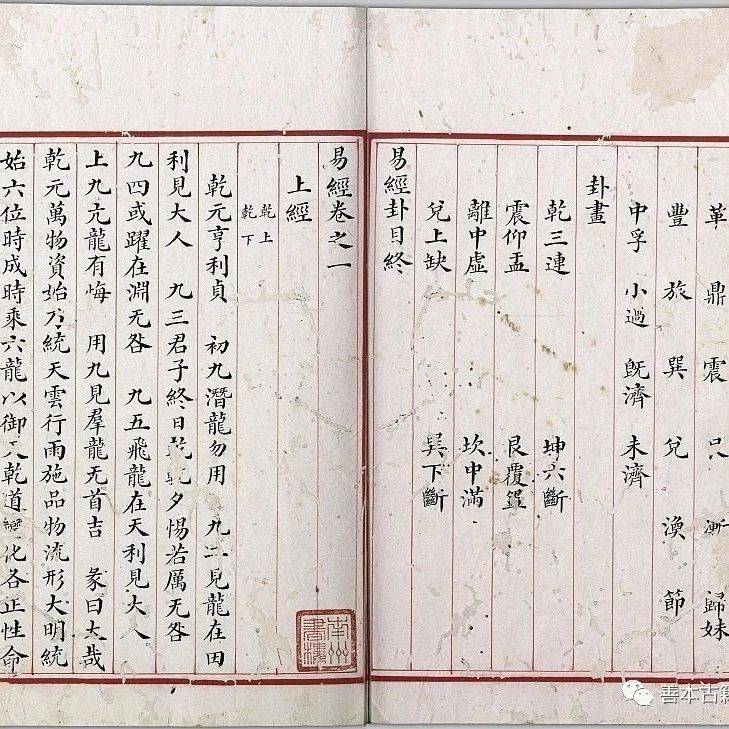 革 鼎 震 艮 漸 歸妹
豐 旅 巽 兌 渙 節
中孚 小過 旣濟 未濟
卦畫
乾三連 坤六斷
震仰盂 艮覆盌
離中虛 坎中滿
兌上缺 巽下斷
易經卦目終
易經卷之一
上經
乾上
乾下
乾元亨利貞 初九潛龍勿用 九二見龍在田
利見大人 九三君子終日乾乾夕惕若厲无咎
九四或躍在淵无咎 九五飛龍在天利見大人
上九亢龍有悔 用九見羣龍无首吉 彖曰大哉
乾元萬物資始乃統天雲行雨施品物流形大明終
始六位時成時乘六龍以御天乾道變化各正性命
南州書樓
善本古籍